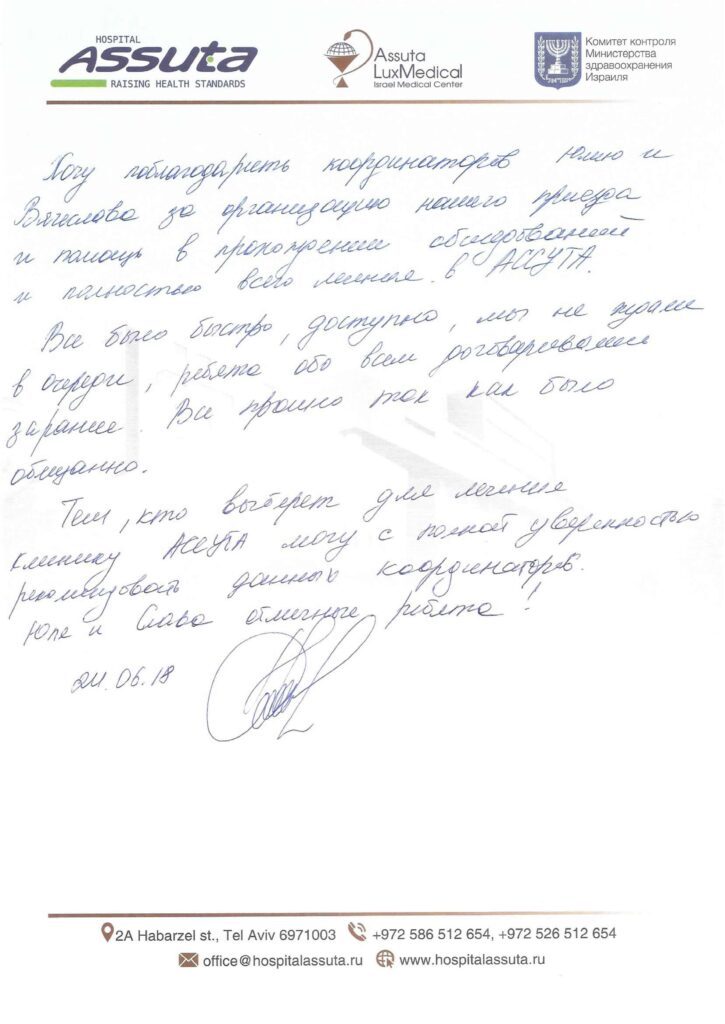 HOSPITAL
Assuta
RAISING HEALTH STANDARDS
Assuta
LuxMedical
Israel Medical Center
Комитет контроля
Министерства
здравоохранения
Израиля
Хочу поблагодарить координаторов Юлию и
Вячеслава за организацию нашего приезда
и помощь в прохождении обследований
и полностью всего лечения в АССУТА.
Все было быстро, доступно, мы не ждали
в очереди, ребята обо всем договаривались
заранее. Все прошло так как было
обещанно.
Тем, кто выберет для лечения
клинику АССУТА могу с полной уверенностью
рекомендовать данных координаторов.
Юля и Слава отличные ребята!
24.06.18
2A Habarzel st., Tel Aviv 6971003 +972 586 512 654, +972 526 512 654
office@hospitalassuta.ru www.hospitalassuta.ru